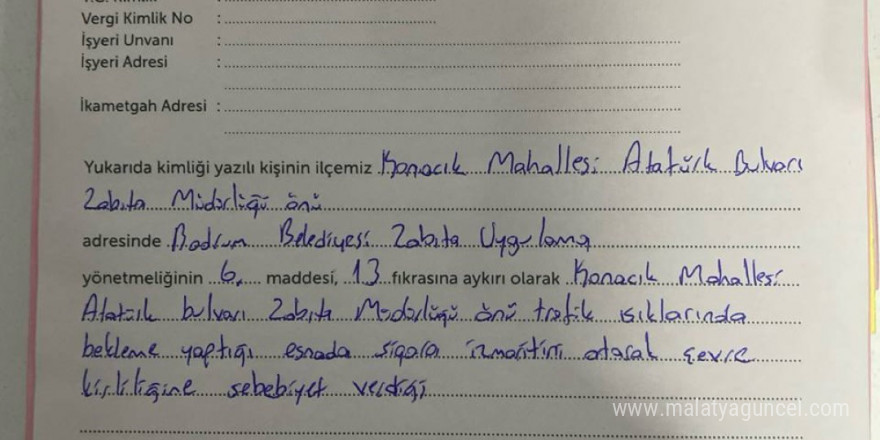 Vergi Kimlik No :
İşyeri Unvanı :
İşyeri Adresi :
İkametgah Adresi :
Yukarıda kimliği yazılı kişinin ilçemiz Konacık Mahallesi Atatürk Bulvarı
Zabıta Müdürlüğü önü
adresinde Bodrum Belediyesi Zabıta Uygulama
yönetmeliğinin 6. maddesi, 13 fıkrasına aykırı olarak Konacık Mahallesi
Atatürk bulvarı Zabıta Müdürlüğü önü trafik ışıklarında
bekleme yaptığı esnada sigara izmaritini atarak çevre
kirliliğine sebebiyet verdiği
www.malatyaguncel.com